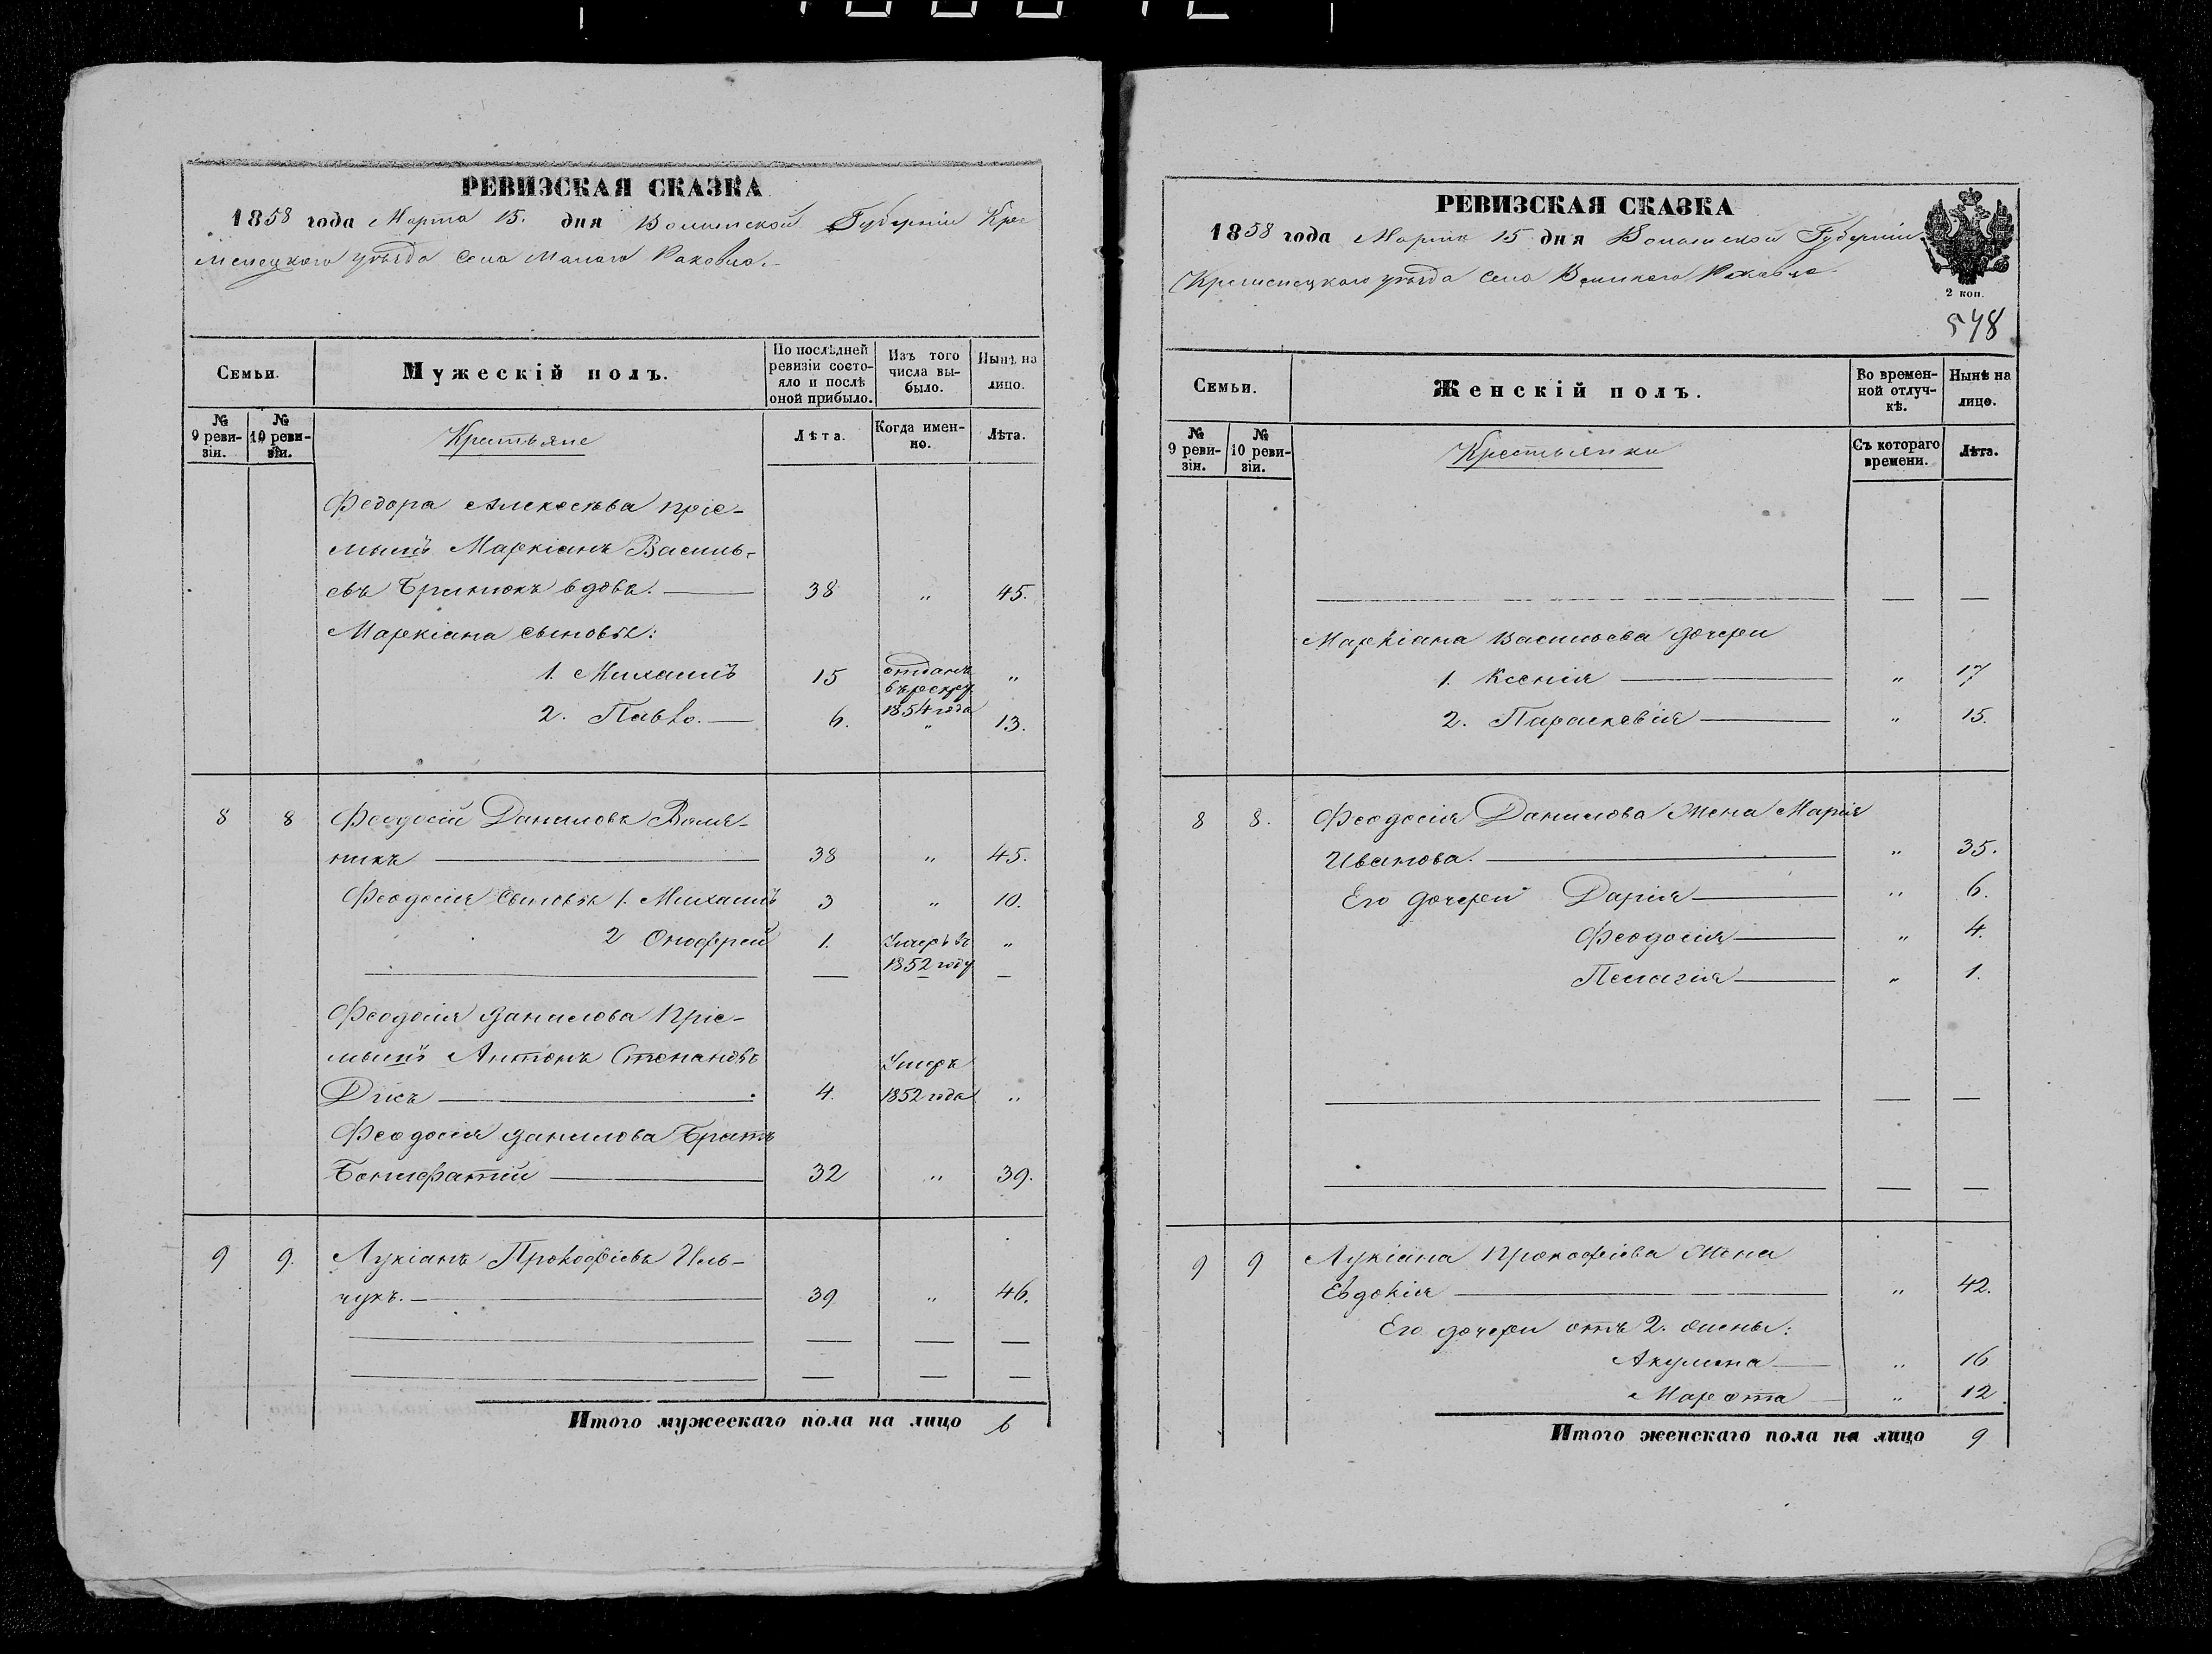 РЕВИЗСКАЯ СКАЗКА
1858 года Марта 15. дня Волынской Губерніи Кре
менецкого уѣзда села Малаго Раковца.
Семьи.
Мужескій полъ.
По послѣдней ревизіи состояло и послѣ оной прибыло.
Изъ того числа выбыло.
Нынѣ на лицо.
№ 9 ревизіи.
№ 10 ревизіи.
Крестьяне
Лѣта.
Когда именно.
Лѣта.
Федора Алексѣева пріе-
мышъ Маркіанъ Василь-
евъ вдовъ. 38 " 45.
Маркіана сыновья:
1. Михаилъ 15 отданъ въ рекру. 1854 года "
2. Павло. 6. " 13.
8 8 Феодосій Даниловъ Воля-
никъ 38 " 45.
Феодосія сыновья 1. Михаилъ 3 " 10.
2 Онофрей 1. Умеръ въ 1852 году "
Феодосія Данилова пріе-
мышъ Антонъ Степановъ
4. Умеръ 1852 года "
Феодосія Данилова братъ
Бонифатій 32 " 39.
9 9. Лукіанъ Прокофіевъ Иль-
чукъ. 39 " 46.
Итого мужескаго пола на лицо 6
РЕВИЗСКАЯ СКАЗКА
1858 года Марта 15 дня Волынской Губерніи
Кременецкого уѣзда села Великого Раковца.
2 коп.
548
Семьи.
Женскій полъ.
Во временной отлучкѣ.
Нынѣ на лицо.
№ 9 ревизіи.
№ 10 ревизіи.
Крестьянки
Съ котораго времени.
Лѣта.
Маркіана Васильева дочери
1. Ксенія " 17
2. Параскевія " 15.
8 8. Феодосія Данилова жена Марія
Иванова. " 35.
Его дочери Дарія " 6.
Феодосія " 4.
Пелагія " 1.
9 9 Лукіана Прокофіева жена
Евдокія " 42.
Его дочери отъ 2. жены:
Акулина " 16
Марѳта " 12
Итого женскаго пола на лицо 9